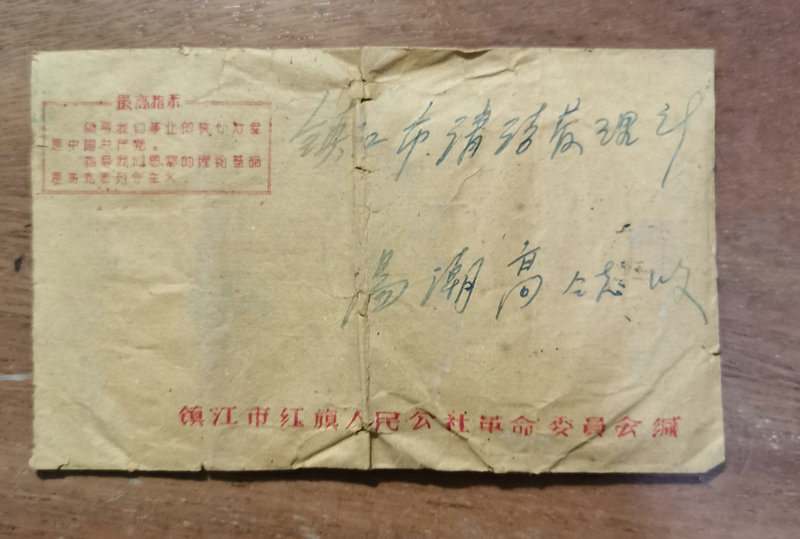 最高指示
领导我们事业的核心力量
是中国共产党。
指导我们思想的理论基础
是马克思列宁主义。
镇江市清洁管理
汤潮高仝志收
镇江市红旗人民公社革命委員会缄